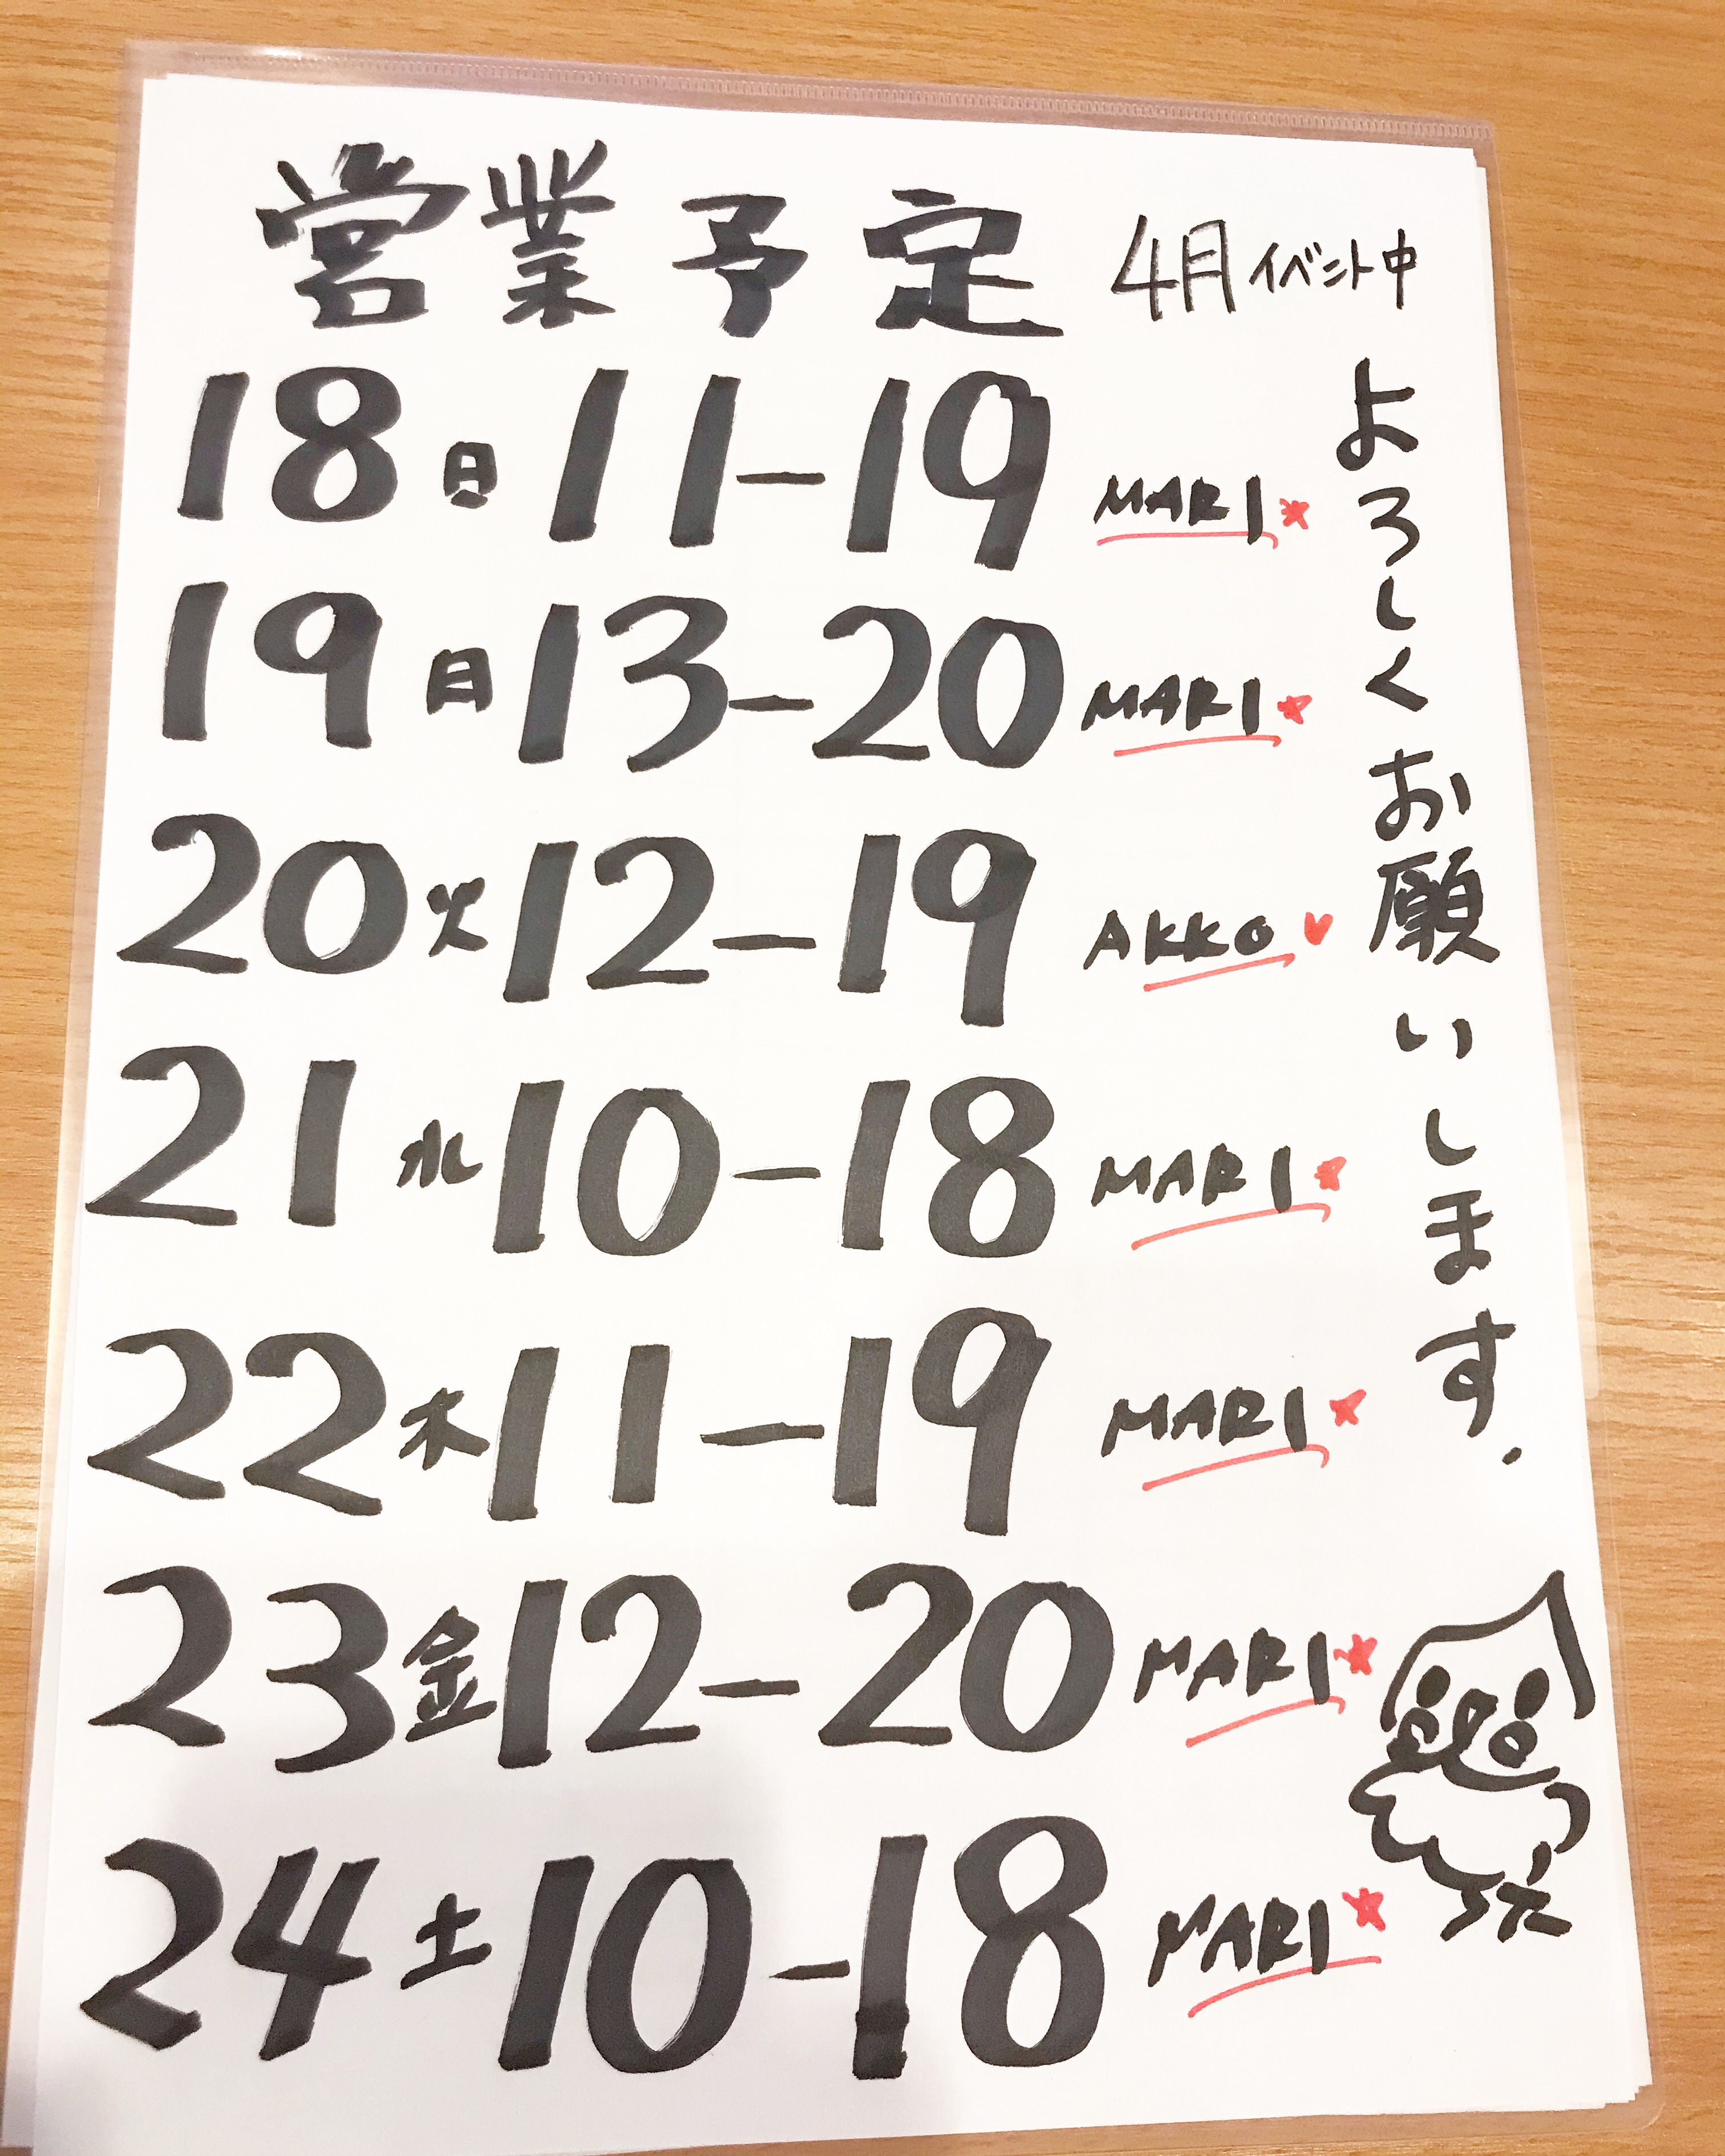 営業予定 4月イベント中
18 日 11-19 MARI
19 日 13-20 MARI
20 火 12-19 AKKO
21 水 10-18 MARI
22 木 11-19 MARI
23 金 12-20 MARI
24 土 10-18 MARI
よろしくお願いします.